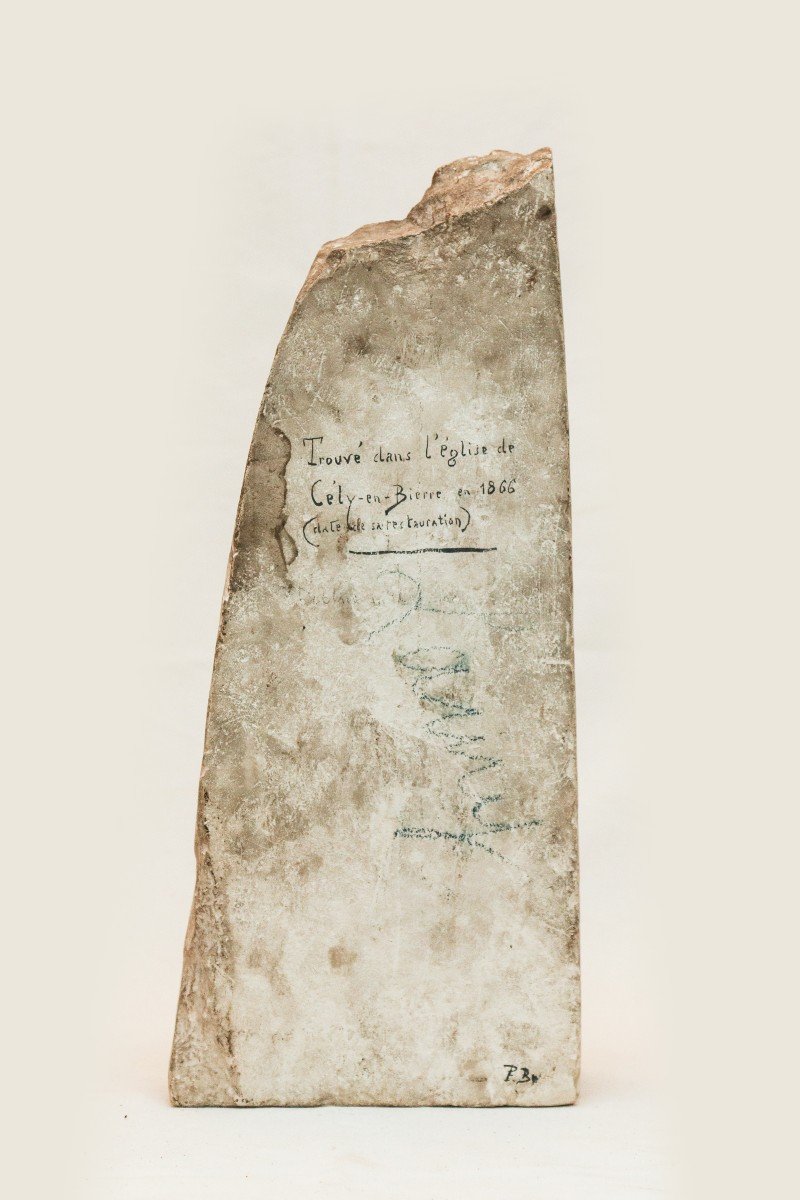 Trouvé dans l'église de
Cély-en-Bierre en 1866
(date de sa restauration)
P.B.